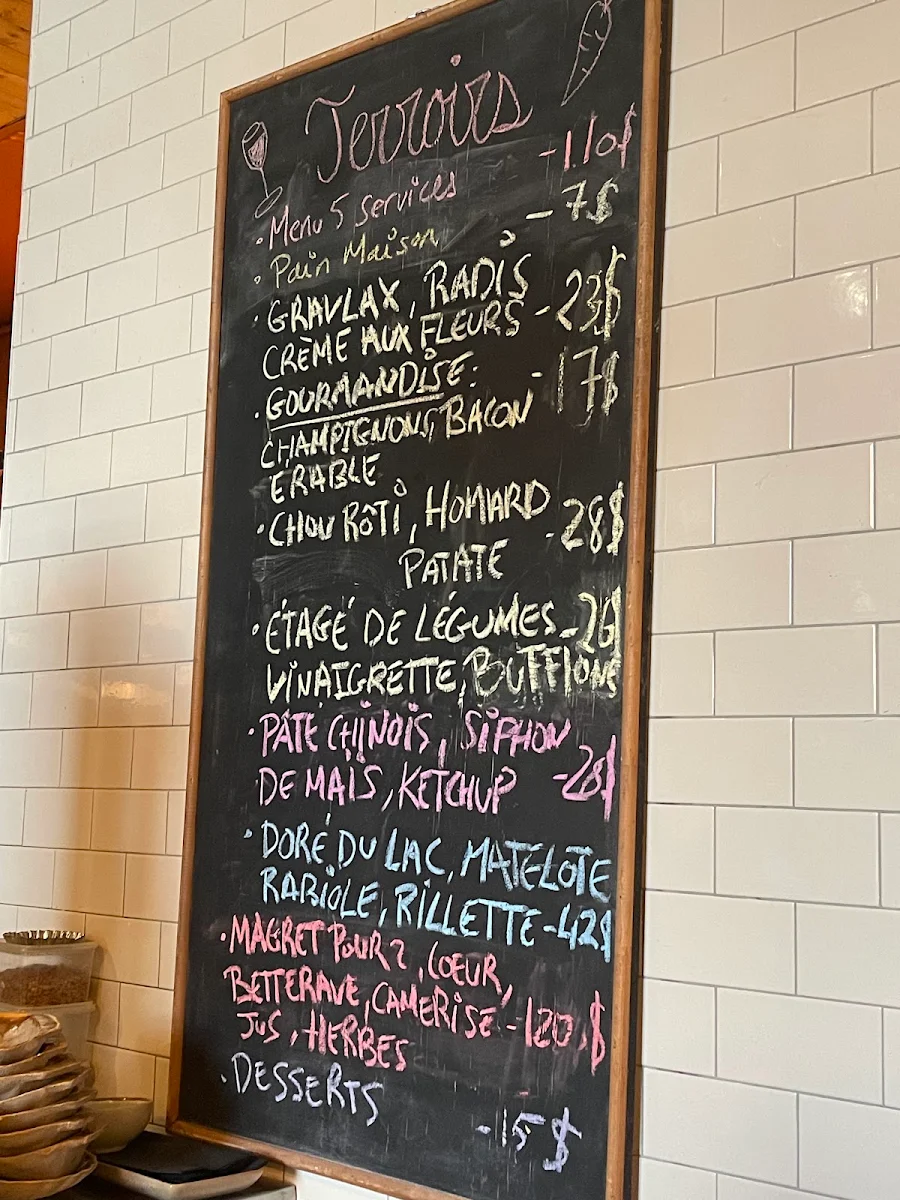 Terroirs
• Menu 5 services -110$
• Pain Maison - 7$
• GRAVLAX, RADIS
CRÈME AUX FLEURS - 23$
• GOURMANDISE: - 17$
CHAMPIGNONS, BACON
ERABLE
• CHOU RÔTI, HOMARD -28$
PATATE
• ÉTAGÉ DE LÉGUMES - 26$
VINAIGRETTE,
• PÂTE CHINOIS, SIPHON
DE MAÏS, KETCHUP -28$
• DORÉ DU LAC, MATELOTE
RABIOLE, RILLETTE -42$
• MAGRET POUR 2, COEUR,
BETTERAVE, CAMERISE -120$
JUS, HERBES
• DESSERTS
-15$